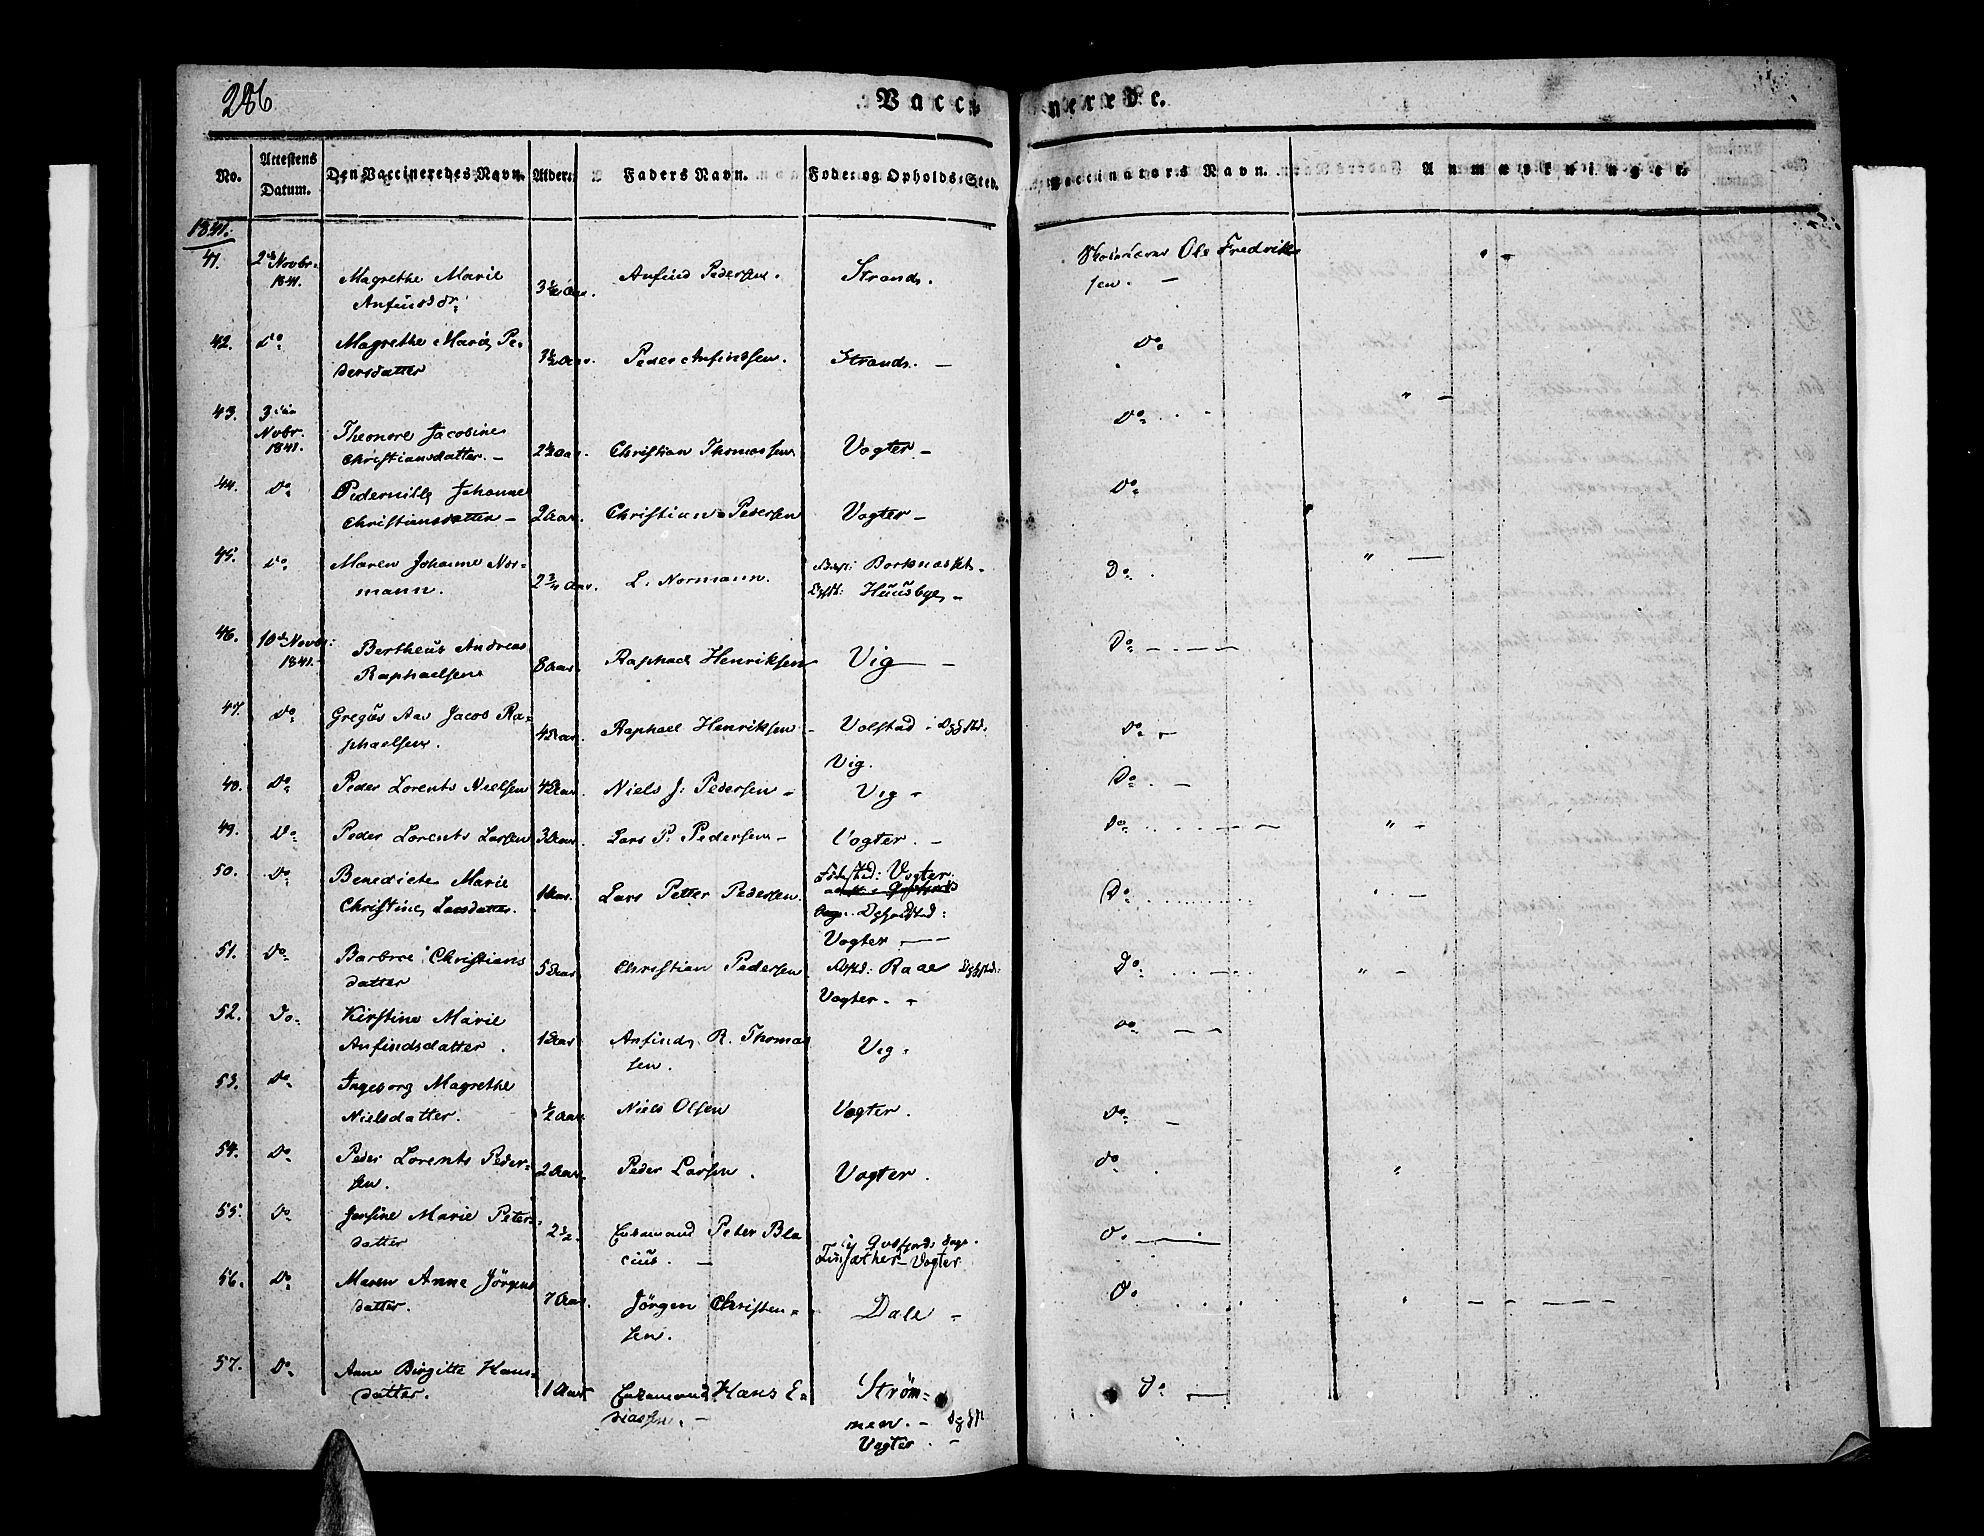 286
Vaccinerede.
No.
Attestens Datum.
Den Vaccineredes Navn.
Alder.
Faders Navn.
Føde- og Opholds-Sted.
Vaccinators Navn.
Anmærkninger.
1841.
41. 2den Novbr. Anfind Pedersen. Strand. Ole Fredrik-
1841. Magrethe Marie 3½ Aar. sen. –
Anfindsdr:
42. Do Magrethe Marie Pe- 3½ Aar. Peder Anfindsen. Strand. – Do
dersdatter
43. 3die Do
Novbr. Theonore Jacobine
1841. Christiansdatter. – 2½ Aar. Christian Thomassen Vogter –
44. Do Pedernille Johanne Do
Christiansdatter – 2 Aar. Christian Pedersen Vogter –
45. Do Maren Johanne Nor- 2¾ Aar. L. Normann. Do
mann. Huusbye –
46. 10de Novbr: Bertheus Andreas Do
1841. Raphaelsen 8 Aar. Raphael Henriksen Vig –
47. Do Jacob Ra- Raphael Henriksen – Volstad Do –
phaelsen. Vig.
48. Do Peder Lorents Nielsen Niels J. Pedersen – Vig – Do –
49. Do Peder Lorents Larsen 3 Aar. Lars P. Pedersen – Vogter. – Do " –
50. Do Benedicte Marie Vogter. Do
Christine Larsdatter. 1 Aar. Lars Petter Pedersen.
Vogter –
51. Do Barbroe Christians 5 Aar. Christian Pedersen Raae Do " –
datter Vogter. –
52. Do. Kirstine Marie Do
Anfindsdatter. 1 Aar Anfind R. Thomas Vig.
sen.
53. Do Ingeborg Magrethe
Nielsdatter. ½ Aar Niels Olsen Vogter. Do –
54. Do Peder Lorents Peder- 2 Aar. Peder Larsen. Vogter. Do "
sen.
55. Do Marie Peters- 2½. Peter Bla Do
datter cius. – Vogter
56. Do Maren Anne Jörgens Do
datter. 7 Aar. Jörgen Christen- Dale –
sen.
57. Do Anne Birgitte Hans- Do –
datter. 1 Aar Hans E- Strøm-
liassen. – men. –
Vogter. –